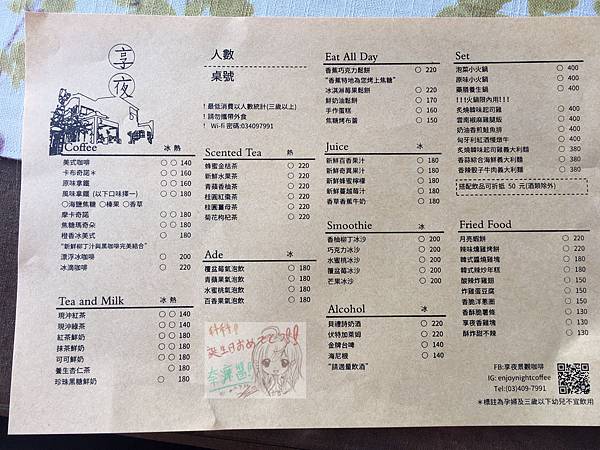 享夜
人數
桌號
!最低消費以人數統計(三歲以上)
!請勿攜帶外食
! Wi-fi 密碼:034097991
Coffee 冰 熱
美式咖啡 ○ ○ 140
卡布奇諾＊ ○ ○ 160
原味拿鐵 ○ ○ 160
風味拿鐵 (以下口味擇一) ○ ○ 180
○海鹽焦糖 ○榛果 ○香草
摩卡奇諾 ○ ○ 180
焦糖瑪奇朵 ○ ○ 180
橙香冰美式 ○ 180
"新鮮柳丁汁與黑咖啡完美結合"
漂浮冰咖啡 ○ 200
冰滴咖啡 ○ 200
Tea and Milk 冰 熱
現沖紅茶 ○ ○ 140
現沖綠茶 ○ ○ 140
紅茶鮮奶 ○ ○ 180
抹茶鮮奶 ○ ○ 180
可可鮮奶 ○ ○ 180
養生杏仁茶 ○ 180
珍珠黑糖鮮奶 ○ 180
Scented Tea 熱
蜂蜜金桔茶 ○ 220
新鮮水果茶 ○ 220
青蘋香柚茶 ○ 220
桂圓紅棗茶 ○ 220
桂圓薑母茶 ○ 220
菊花枸杞茶 ○ 220
Ade 冰
覆盆莓氣泡飲 ○ 180
青蘋果氣泡飲 ○ 180
水蜜桃氣泡飲 ○ 180
百香果氣泡飲 ○ 180
誕生日おめでとう!!
Eat All Day
香蕉巧克力鬆餅 ○ 220
"香蕉特地為您烤上焦糖"
冰淇淋莓果鬆餅 ○ 220
鮮奶油鬆餅 ○ 170
手作蛋糕 ○ 160
焦糖烤布蕾 ○ 150
Juice 冰
新鮮百香果汁 ○ 180
新鮮奇異果汁 ○ 180
新鮮蜂蜜檸檬 ○ 180
新鮮蔓越莓汁 ○ 180
香草香蕉牛奶 ○ 180
Smoothie 冰
香柚柳丁冰沙 ○ 220
巧克力冰沙 ○ 220
水蜜桃冰沙 ○ 220
覆盆莓冰沙 ○ 220
芒果冰沙 ○ 220
Alcohol 冰
貝禮詩奶酒 ○ 220
伏特加萊姆 ○ 220
金牌台啤 ○ 140
海尼根 ○ 140
"請適量飲酒"
Set
泡菜小火鍋 ○ 400
原味小火鍋 ○ 400
藥膳養生鍋 ○ 400
!!!火鍋限內用!!!
炙燒韓味起司雞 ○ 400
雲南椒麻雞腿飯 ○ 400
奶油香煎鮭魚排 ○ 400
匈牙利紅酒慢燉牛 ○ 400
炙燒韓味起司雞義大利麵 ○ 400
香蒜綜合海鮮義大利麵 ○ 400
香辣骰子牛肉義大利麵 ○ 400
搭配飲品可折抵 50 元(酒類除外)
Fried Food
月亮蝦餅 ○ 230
辣味燻雞烤餅 ○ 220
韓式醬燒雞塊 ○ 180
韓式辣炒年糕 ○ 180
酸辣炸雞翅 ○ 180
炸雞蛋豆腐 ○ 180
香脆洋蔥圈 ○ 150
香酥脆薯條 ○ 150
享夜香雞塊 ○ 150
酥炸甜不辣 ○ 130
FB:享夜景觀咖啡
IG: enjoynightcoffee
Tel:(03)409-7991
＊標註為孕婦及三歲以下幼兒不宜飲用